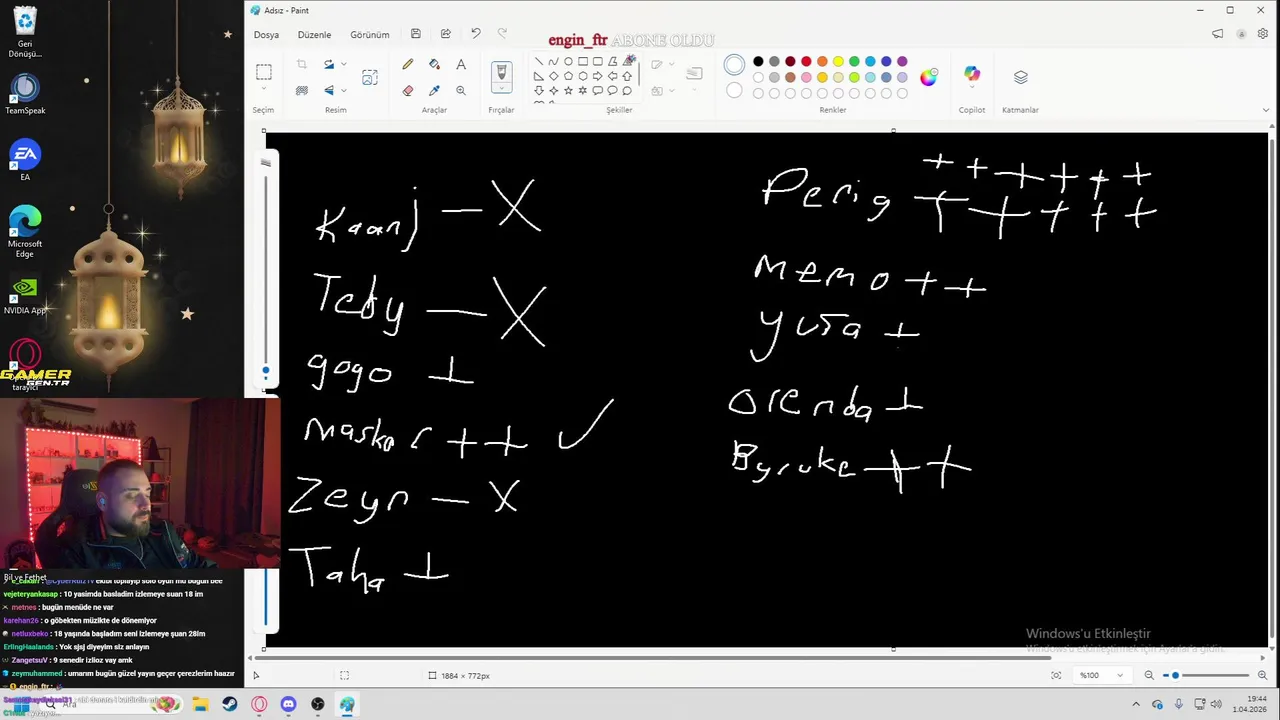 Adsız - Paint
Dosya Düzenle Görünüm
engin_ftr ABONE OLDU
Seçim Resim Araçlar Fırçalar Şekiller Renkler Copilot Katmanlar
Geri
Dönüşü...
TeamSpeak
EA
Microsoft
Edge
NVIDIA App
tarayici
GAMER
GEN.TR
Kaanj — X
Teby — X
gogo +
masker + + ✓
Zeyn — X
Taha +
Perig + + + + + +
+ + + + +
memo + +
yuşa +
orenda +
Byruke + +
Bil ve Fethet
vejeteryankasap : 10 yasimda basladim izlemeye suan 18 im
metnes : bugün menüde ne var
karehan26 : o göbekten müzikte de dönemiyor
netluxbeko : 18 yaşında başladım seni izlemeye şuan 28im
ErlingHaalands : Yok sjsj diyeyim siz anlayın
ZangetsuV : 9 senedir izlioz vay amk
zeymuhammed : umarım bugün güzel yayın geçer çerezlerim haazır
engin_ftr :
Windows'u Etkinleştir
Windows'u etkinleştirmek için Ayarlar'a gidin.
1884 × 772px
%100
Ara
19:44
1.04.2026